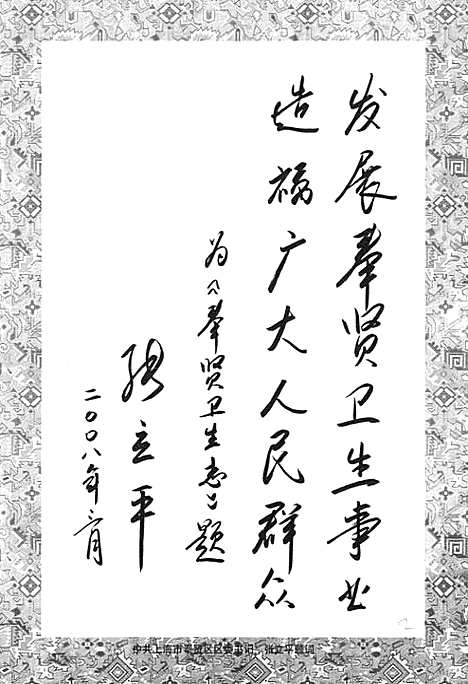 发展奉贤卫生事业
造福广大人民群众
为《奉贤卫生志》题
张立平
二〇〇八年三月
中共上海市奉贤区区委书记 张立平题词